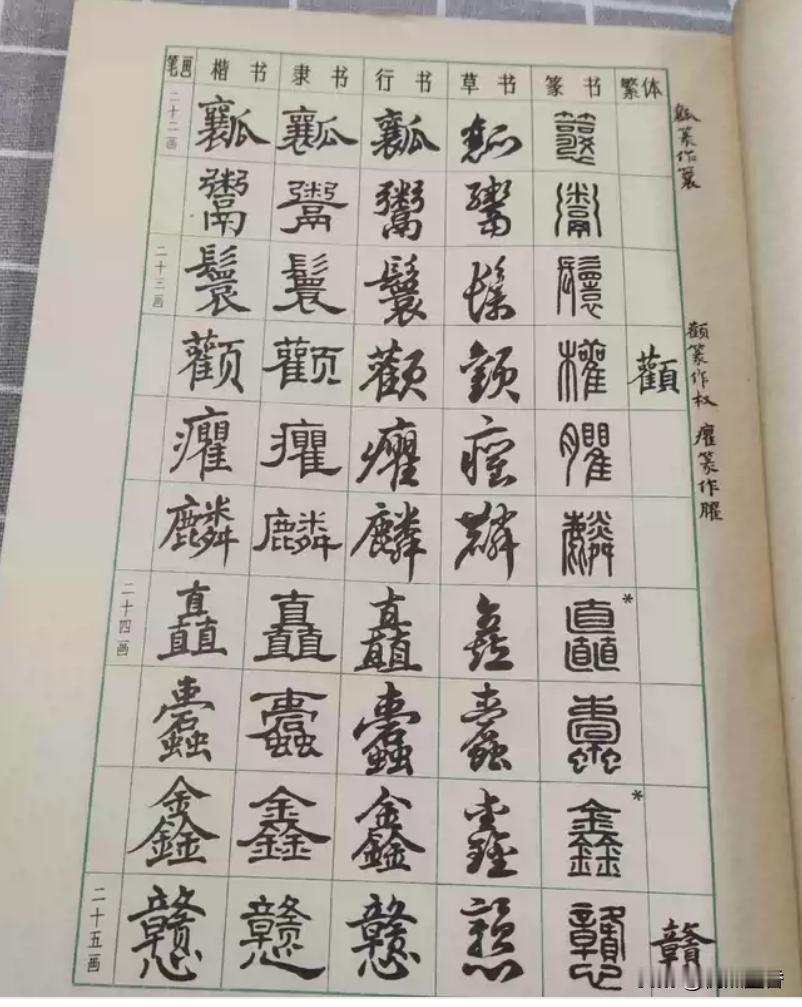 笔画 楷书 隶书 行书 草书 篆书 繁体
二十二画 瓤 瓤 瓤 瓤
鬻 鬻 鬻 鬻 鬻
二十三画 鬟 鬟 鬟 鬟 鬟
颧 颧 颧 颧 權 顴
癯 癯 癯 癯 臞
麟 麟 麟 麟 麟
二十四画 矗 矗 矗 矗 矗*
蠹 蠹 蠹 蠹 蠹
鑫 鑫 鑫 鑫 鑫*
二十五画 戆 戆 戆 戆 戇 贛
瓤篆作
颧篆作权 癯篆作臞